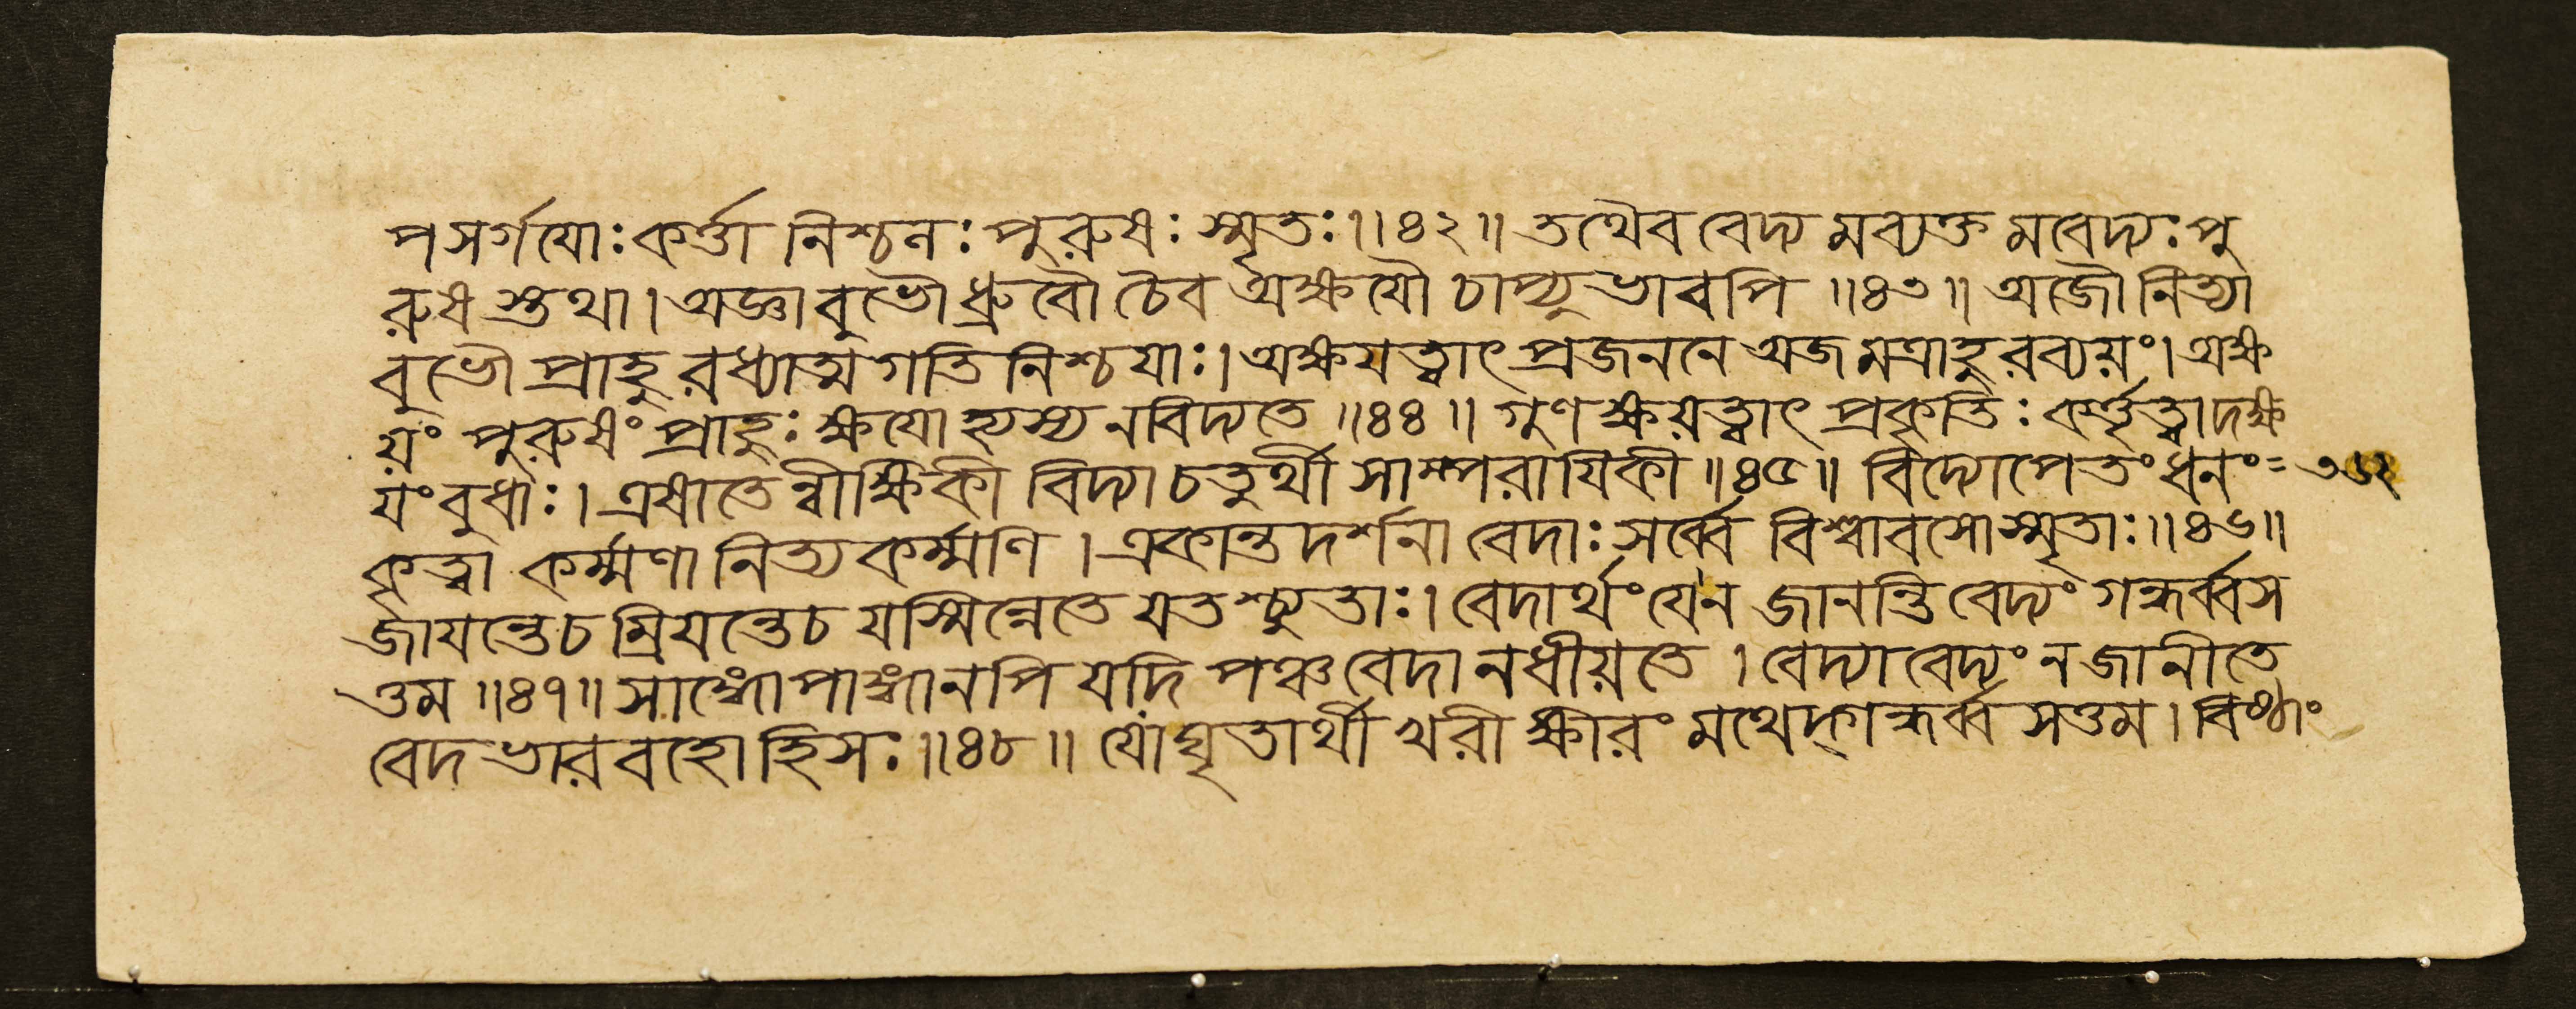 পসর্গযোঃ কর্ত্তা নিশ্চনঃ পুরুষঃ স্মৃতঃ ॥৪২॥ তথৈব বেদ্য মব্যক্ত মবেদ্যঃ পু
রুষ স্তথা । অজ্ঞাবুভৌ ধ্রুবৌ চৈব অক্ষযৌ চাপ্যুভাবপি ॥৪৩॥ অজৌ নিত্যা
বুভৌ প্রাহু রধ্যাত্মগতি নিশ্চযাঃ । অক্ষযত্বাৎ প্রজননে অজমত্রাহুরব্যয়ং । অক্ষ
য়ং পুরুষং প্রাহুঃ ক্ষযো হ্যস্য নবিদ্যতে ॥৪৪॥ গুণক্ষয়ত্বাৎ প্রকৃতিঃ কর্ত্তৃত্বাদক্ষ
যং বুধাঃ । এষাতে ন্বীক্ষিকী বিদ্যা চতুর্থী সাম্পরাযিকী ॥৪৫॥ বিদ্যোপেতং ধনং = ৩৬২
কৃত্বা কর্ম্মণা নিত্যকর্ম্মাণি । একান্তদর্শনা বেদাঃ সর্ব্বে বিশ্বাবসো স্মৃতাঃ ॥৪৬॥
জাযন্তেচ ম্রিযন্তেচ যস্মিন্নেতে যতশ্চ্যুতাঃ । বেদার্থং যেন জানন্তি বেদ্যং গন্ধর্ব্বস
ত্তম ॥৪৭॥ সাঙ্গোপাঙ্গানপি যদি পঞ্চবেদানধীয়তে । বেদ্যাবেদ্যং নজানীতে
বেদভারবহোহিসঃ ॥৪৮॥ যো ঘৃতার্থী খরীক্ষীরং মথেদ্গন্ধর্ব্ব সত্তম । বিষ্ঠাং